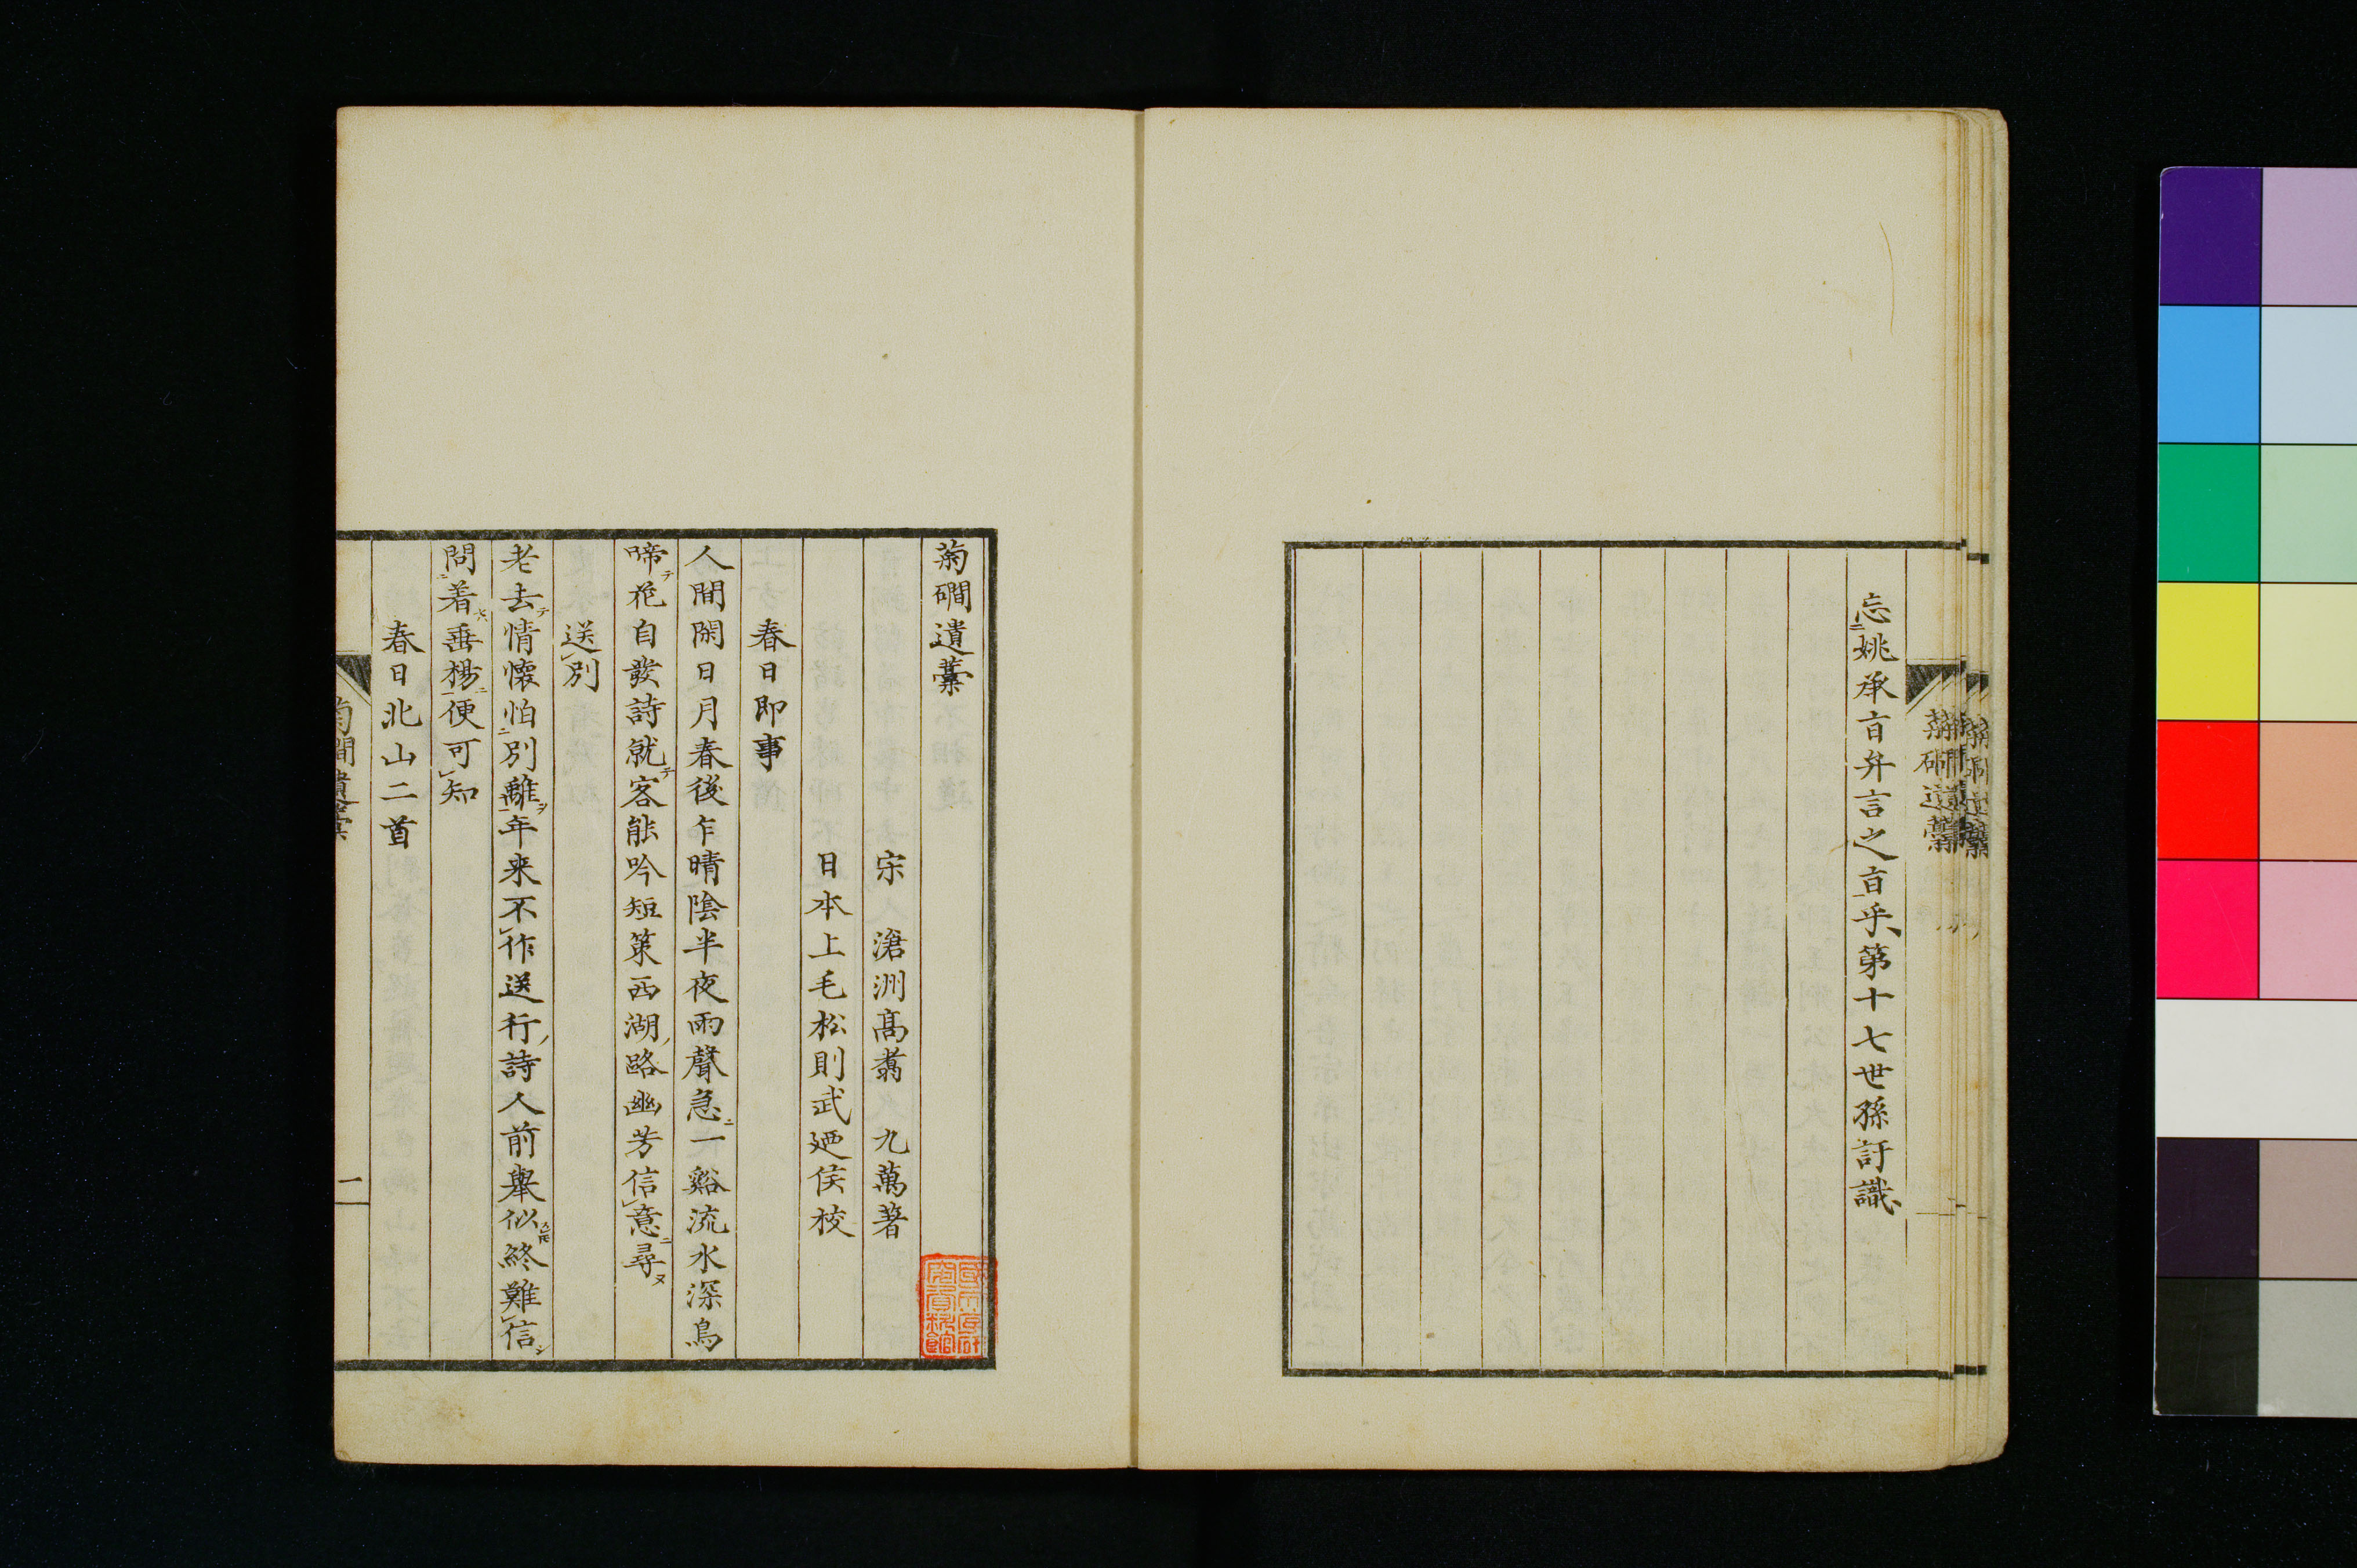 忘姚承亯弁言之亯乎第十七世孫訏識
菊磵遺藁
菊磵遺藁
宋 滄洲高翥 九萬著
日本上毛松則武廼侯校
春日即事
人間閑日月春後乍晴陰半夜雨聲急ニ一谿流水深鳥
啼テ花自發詩就テ客能吟短策西湖路幽芳信レ意ニ尋ヌ
送レ別
老去テ情懷怕二別離一ヲ年来不レ作送行詩人前舉似終難レ信シ
問二着垂楊一ニ便可レ知
春日北山二首
菊磵遺藁
一